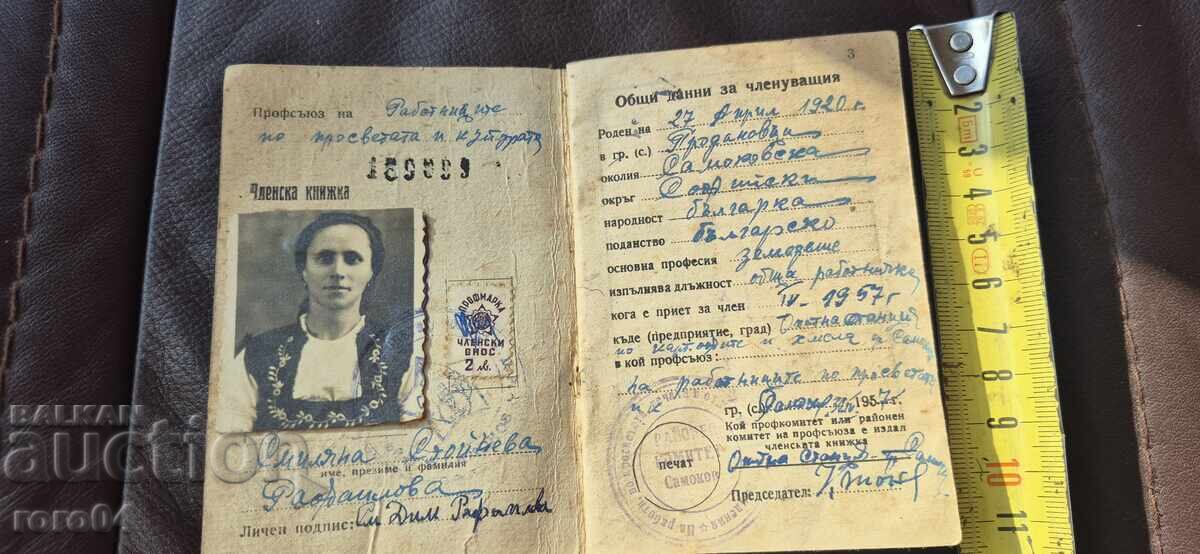 Профсъюз на Работниците
по просветата и културата
159099
Членска книжка
ПРОФМАРКА
ЧЛЕНСКИ
ВНОС
2 лв.
Смиляна Стойчева
име, презиме и фамилия
Личен подпис:
3
Общи данни за членуващия
Роден на 27 Април 1920 г.
в гр. (с.) Продановци
околия Самоковска
окръг Софийски
народност българка
поданство българско
основна професия земеделие
изпълнява длъжност обща работничка
кога е приет за член IV - 1957 г
къде (предприятие, град) Опитна станция
по картофите и хмела
в кой профсъюз:
на работниците по просветата
гр. (с.) Самоков 1957 г.
Кой профкомитет или районен
комитет на профсъюза е издал
членската книжка
Опитна Станция
печат
Самоков
Председател:
2 3 4 5 6 7 8 9 10 11
BALKAN
auction
roro04